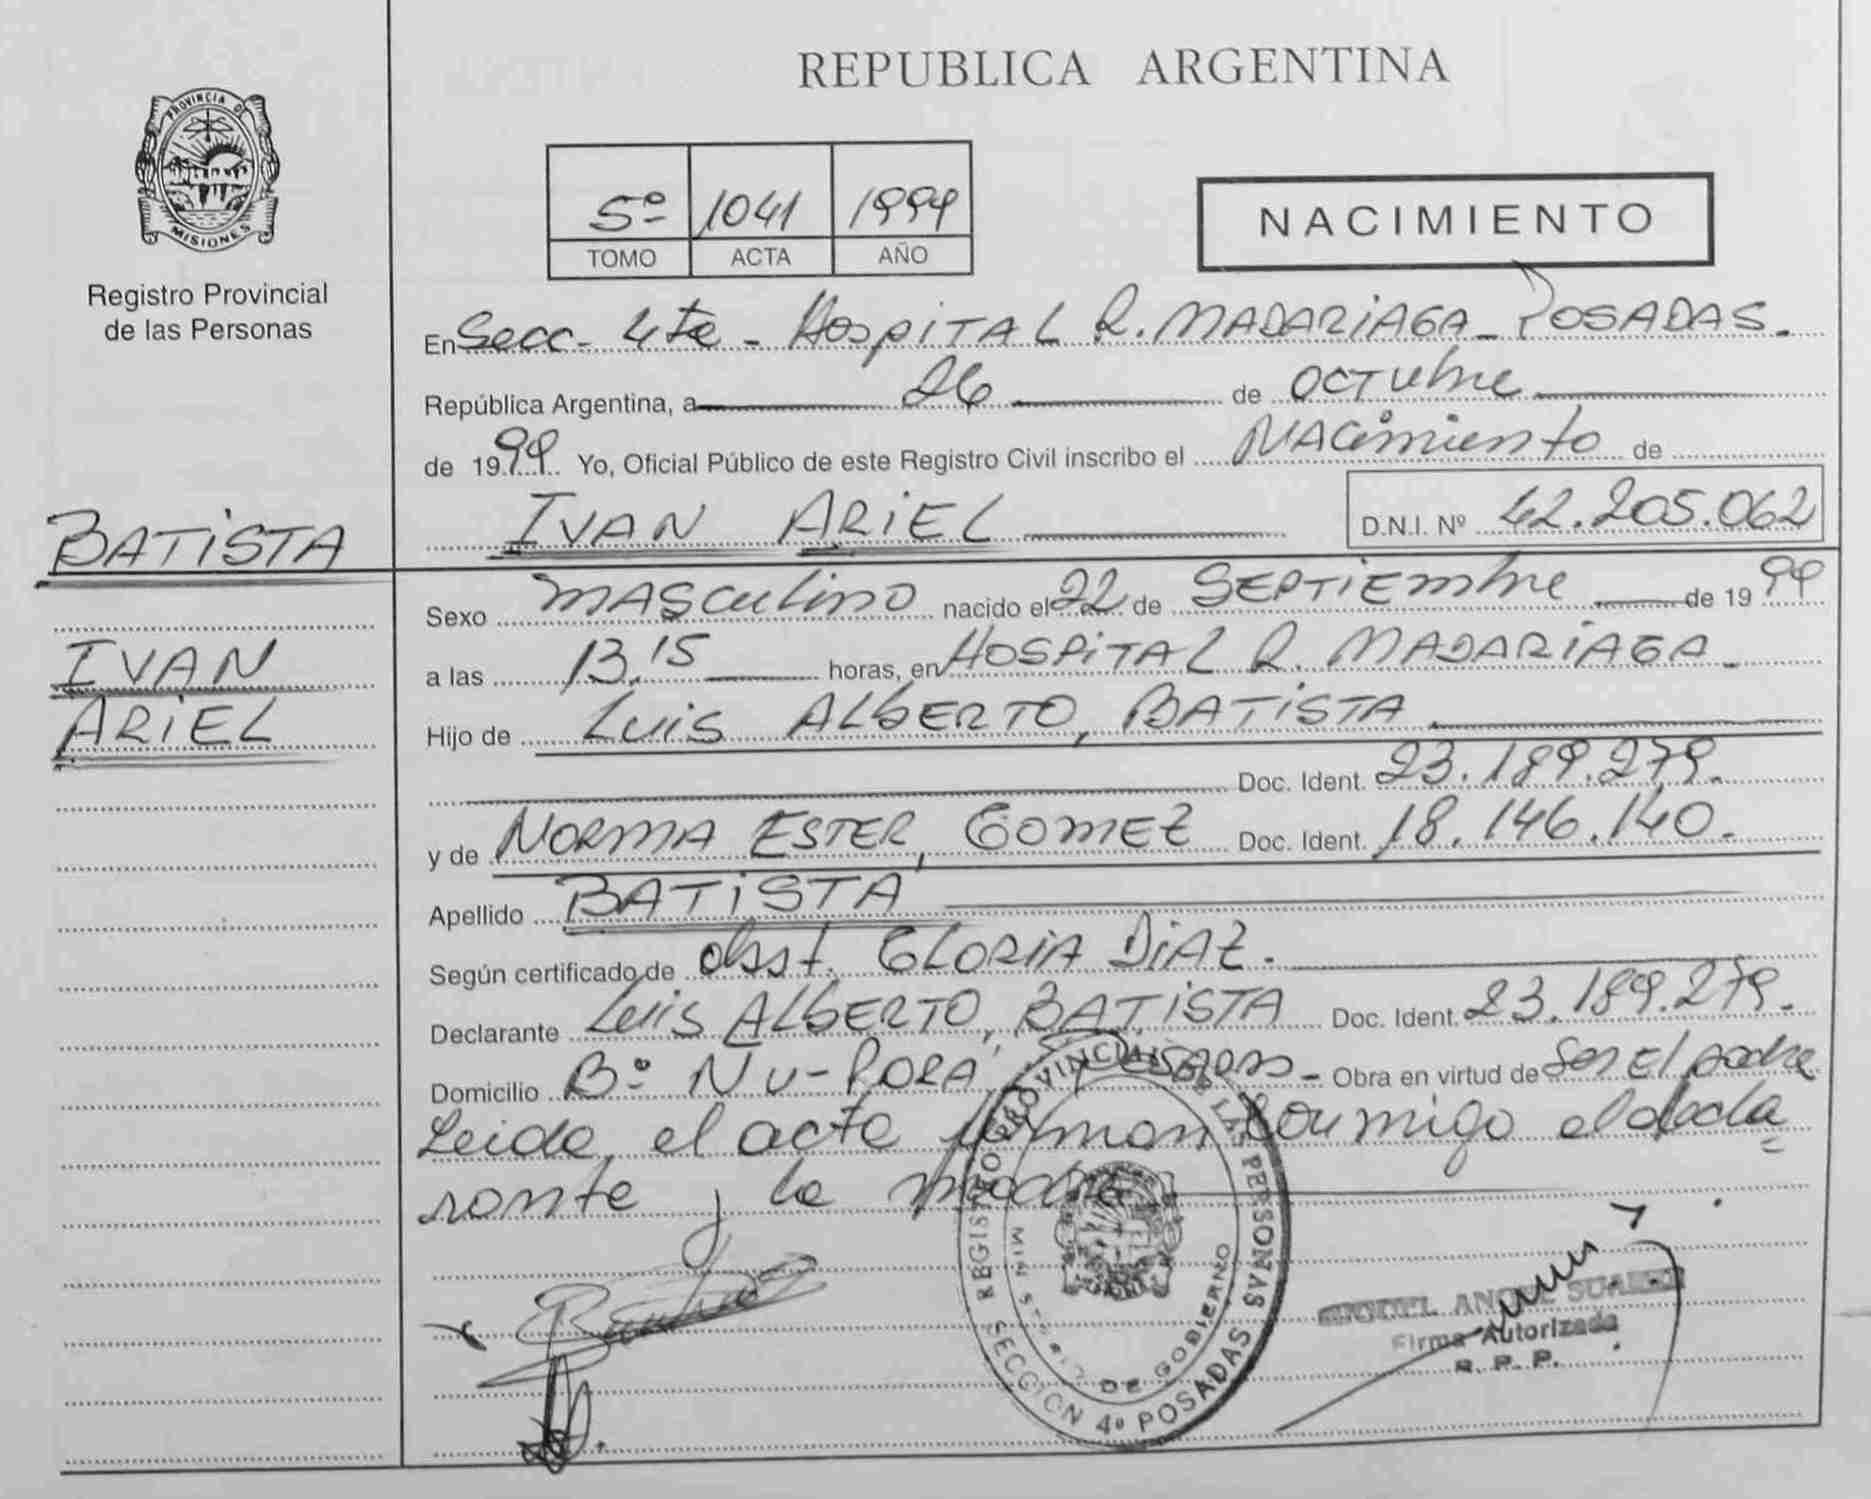 REPUBLICA ARGENTINA
PROVINCIA DE
MISIONES
Registro Provincial
de las Personas
5º 1041 1999
TOMO ACTA AÑO
NACIMIENTO
En Secc- 4ta - HOSPITAL R. MADARIAGA - POSADAS.
República Argentina, a 26 de OCTUbre
de 1999 Yo, Oficial Público de este Registro Civil inscribo el NACimiento de
IVAN ARIEL D.N.I. Nº 42.205.062
BATISTA
IVAN
ARIEL
Sexo MASculino nacido el 22 de SEPTIEmbre de 1999
a las 13.15 horas, en HOSPITAL R. MADARIAGA.
Hijo de LUIS ALBERTO, BATISTA
Doc. Ident. 23.189.279.
y de NORMA ESTER, GOMEZ Doc. Ident. 18.146.140.
Apellido BATISTA
Según certificado de obst. GLORIA DIAZ.
Declarante LUIS ALBERTO, BATISTA Doc. Ident. 23.189.279.
Domicilio Bº ÑU-PORA, POSADAS - Obra en virtud de Ser El padre
Leida el acta firman conmigo el decla
rante y la madre
REGISTRO PROVINCIAL DE LAS PERSONAS
MINISTERIO DE GOBIERNO
SECCION 4º POSADAS
MIGUEL ANGEL SUAREZ
Firma Autorizada
R. P. P.